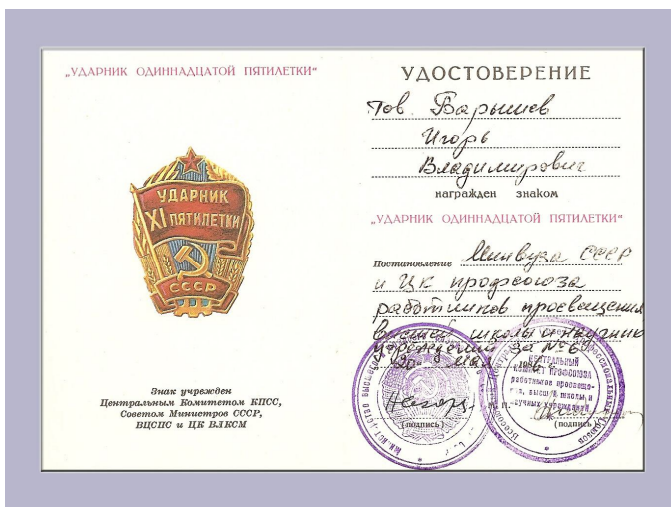 „УДАРНИК ОДИННАДЦАТОЙ ПЯТИЛЕТКИ“
УДАРНИК
XI ПЯТИЛЕТКИ
СССР
Знак учрежден
Центральным Комитетом КПСС,
Советом Министров СССР,
ВЦСПС и ЦК ВЛКСМ
УДОСТОВЕРЕНИЕ
Тов. Барышев
Игорь
Владимирович
награжден знаком
„УДАРНИК ОДИННАДЦАТОЙ ПЯТИЛЕТКИ“
Постановление Минвуза СССР
и ЦК профсоюза
работников просвещения
высшей школы и научных
учреждений за №
ЦЕНТРАЛЬНЫЙ
КОМИТЕТ ПРОФСОЮЗА
работников просвеще-
ния, высшей школы и
научных учреждений
(подпись)
(подпись)